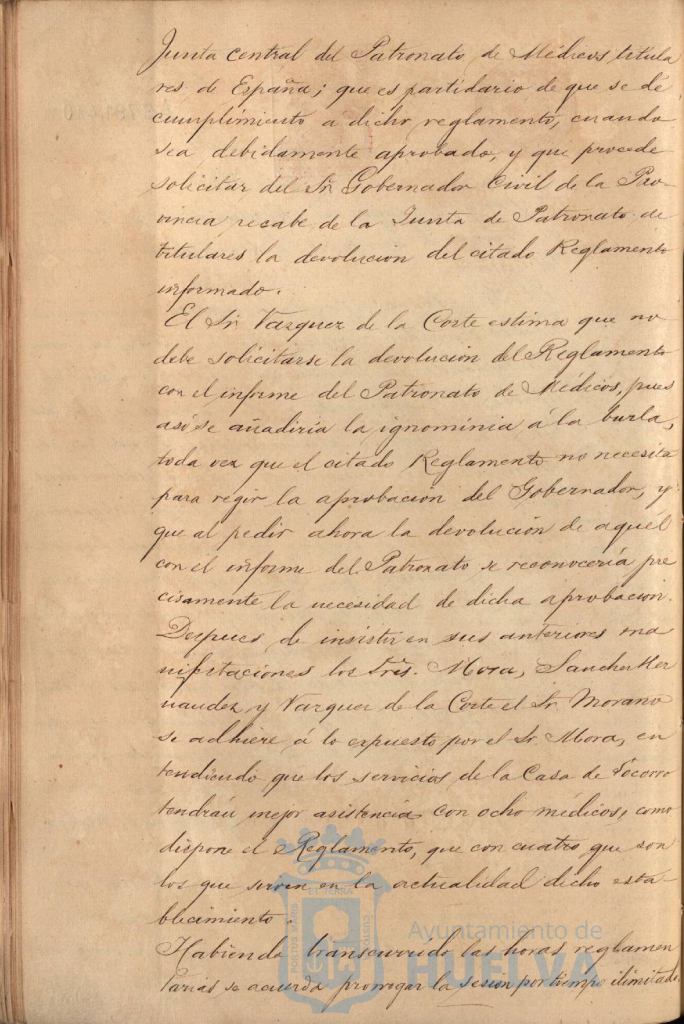 Junta central del Patronato de Médicos titula
res de España; que es partidario de que se dé
cumplimiento a dicho reglamento, cuando
sea debidamente aprobado, y que procede
solicitar del Sr. Gobernador Civil de la Pro-
vincia recabe de la Junta de Patronato de
titulares la devolución del citado Reglamento
informado.
El Sr. Vazquez de la Corte estima que no
debe solicitarse la devolución del Reglamento
con el informe del Patronato de Médicos, pues
así se añadiría la ignominia á la burla,
toda vez que el citado Reglamento no necesita
para regir la aprobación del Gobernador, y
que al pedir ahora la devolución de aquél
con el informe del Patronato se reconocería pre
cisamente la necesidad de dicha aprobación.
Despues de insistir en sus anteriores ma
nifestaciones los Sres. Mora, Sanchez Her
nandez y Vazquez de la Corte el Sr. Morano
se adhiere á lo expuesto por el Sr. Mora, en
tendiendo que los servicios de la Casa de Socorro
tendrán mejor asistencia con ocho médicos, como
dispone el Reglamento, que con cuatro que son
los que sirven en la actualidad dicho esta-
blecimiento.
Habiendo transcurrido las horas reglamen
tarias se acuerda prorrogar la sesion por tiempo ilimitado
Ayuntamiento de
HUELVA